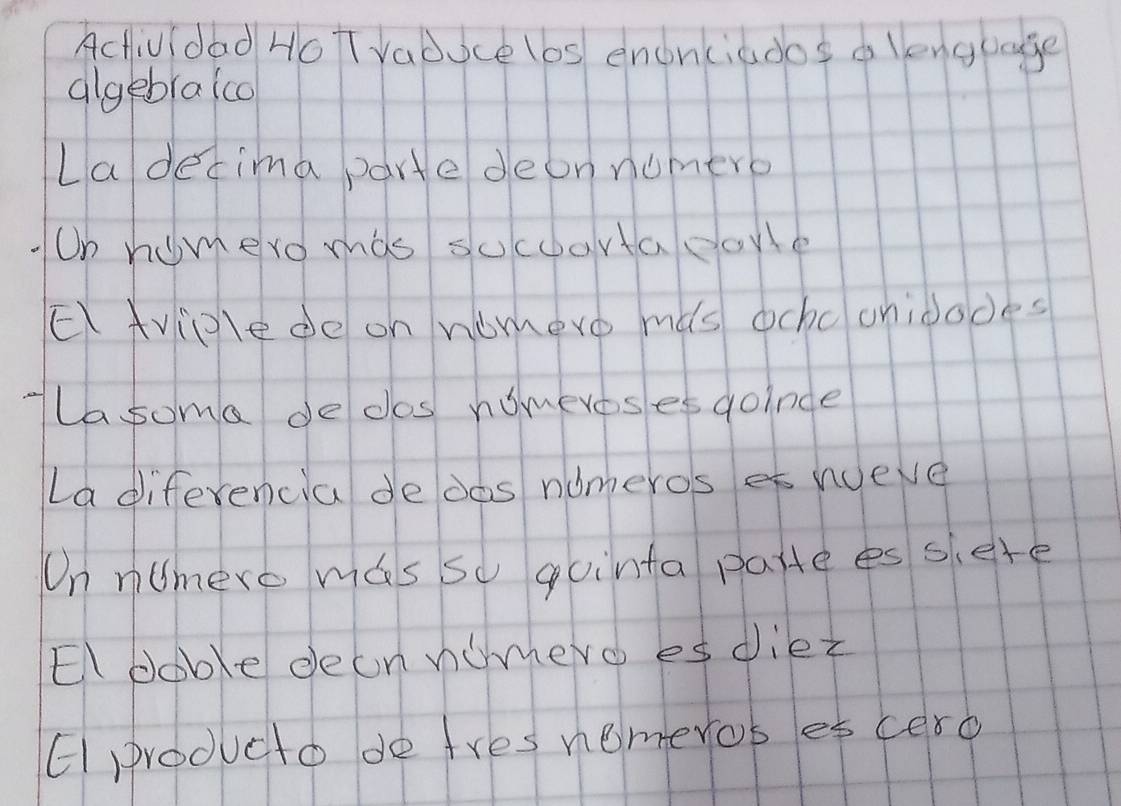 Actividad 40 Traduce los enunciados a lenguage
algebraico
La decima parte de un número
- Un número más su cuarta parte
El triple de un número más ocho unidades
- La suma de dos números es quince
La diferencia de dos números es nueve
Un número más su quinta parte es siete
El doble de un número es diez
El producto de tres números es cero